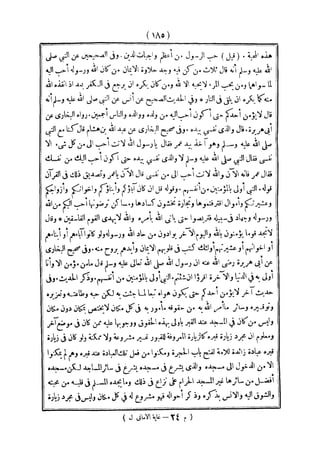 ﴿ ١٨٥ ﴾
هذه المحبة . ( قيل ) حب الرسول من أعظم واجبات الدين . وفى الصحيحين عن النبي صلى
الله عليه وسلم أنه قال ثلاث من كن فيه وجد حلاوة الايمان من كان الله ورسوله أحب اليه
مما سواهما ومن يحب المرء لا يحبه الا لله ومن كان يكره ان يرجع فى الكفر بعد اذ انقذه الله
منه كما يكره ان يلقى فى النار ه وفى الحديث الصحيح عن أنس عن النبي صلى الله عليه وسلم أنه
قال لا يؤمن أحدكم حتى أكون أحب اليه من ولده ووالده والناس أجمعين . رواه البخارى عن
أبى هريرة . قال والذى نفسى بيده . وفى صحيح البخارى عن عبد الله بن هشام قال كنا مع النبي
صلى الله عليه وسلم وهو آخذ بيد عمر فقال يارسول الله لأنت أحب الى من كل شئ . الا
نفسى فقال النبي صلى الله عليه وسلم لا والذى نفسى بيده حتى أكون أحب اليك من نفسك
فقال عمر فانه الآن والله لأنت أحب الى من نفسى . قال الآن ياعمر وتصديق ذلك فى القرآن
قوله . النبي أولى بالمؤمنين من أنفسهم . وقوله قل ان كان آباؤكم وأبناؤكم واخوانكم وأزواجكم
وعشيرتكم وأموال اقترفتموها وتجارة تخشون كسادها ومساكن ترضونها أحب اليكم من الله
ورسوله وجهاد فى سبيله فتربصوا حتى يأتى الله بأمره والله لا يهدى القوم الفاسقين * وقال
لا تجد قوما يؤمنون بالله واليوم الآخر يوادون من حاد الله ورسوله ولو كانوا آباءهم أو أبناءهم
أو اخوانهم أو عشيرتهم أولئك كتب فى قلوبهم الايمان وأيدهم بروح منه . وفى صحيح البخارى
عن أبى هريرة رضى الله عنه ان رسول الله صلى الله تعالى عليه وسلم قال مامن مؤمن الا وأنا
أولى به فى الدنيا والآخرة اقرؤا ان شئتم . النبي أولى بالمؤمنين من أنفسهم . وذكر الحديث . وفى
حديث آخر لا يؤمن أحدكم حتى يكون هواه تبعا لما جئت به لكن حبه وطاعته وتعزيره
وتوقيره وسائر ما أمر الله به من حقوقه مأمور به فى كل مكان لا يختص بمكان دون مكان
وليس من كان فى المسجد عند القبر بأولى بهذه الحقوق ووجوبها عليه ممن كان فى موضع آخر
ومعلوم ان مجرد زيارة قبره كالزيارة المعروفة للقبور غير مشروعة ولا ممكنة ولو كان فى زيارة
قبره عبادة زائدة للامة لفتح باب الحجرة ومكنوا من فعل تلك العبادة عند قبره وهم لم يمكنوا
الا من الدخول الى مسجده والذى يشرع فى مسجده يشرع فى سائر المساجد لكن مسجده
أفضل من سائرها غير المسجد الحرام على نزاع فى ذلك وما يجده المسلم فى قلبه من محبته
والشوق اليه والانس بذكره وذكر أحواله فهو مشروع له فى كل مكان وليس فى مجرد زيارة
( م ٢٤ — غاية الأمانى ل )